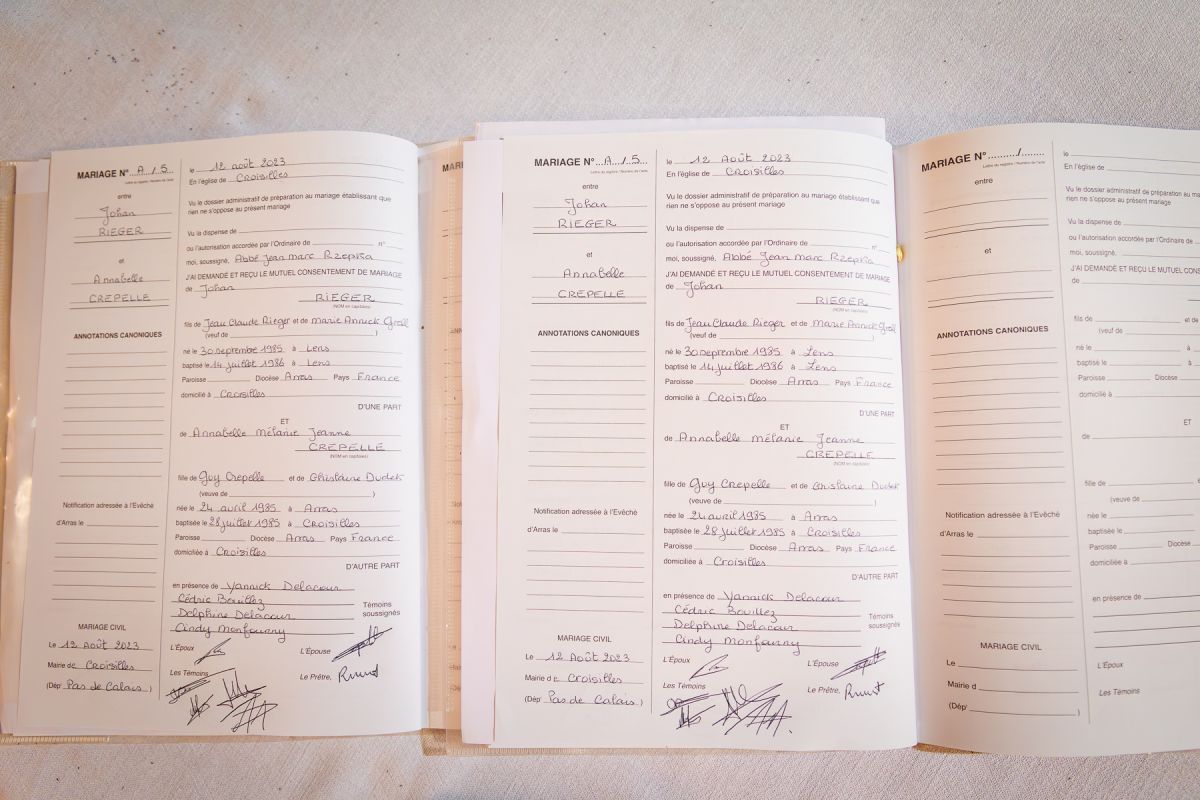 MARIAGE N° A / 5
Lettre du registre / Numéro de l'acte
entre
Johan
RIEGER
et
Annabelle
CREPELLE
ANNOTATIONS CANONIQUES
Notification adressée à l'Evêché
d'Arras le
MARIAGE CIVIL
Le 12 Août 2023
Mairie de Croisilles
(Dépt Pas de Calais)
le 12 août 2023
En l'église de Croisilles
Vu le dossier administratif de préparation au mariage établissant que
rien ne s'oppose au présent mariage
Vu la dispense de
ou l'autorisation accordée par l'Ordinaire de n°
moi, soussigné, Abbé Jean Marc Rzepka
J'AI DEMANDÉ ET REÇU LE MUTUEL CONSENTEMENT DE MARIAGE
de Johan
RIEGER
(NOM en capitales)
fils de Jean Claude Rieger et de Marie Annick
(veuf de )
né le 30 septembre 1985 à Lens
baptisé le 14 juillet 1986 à Lens
Paroisse Diocèse Arras Pays France
domicilié à Croisilles
D'UNE PART
ET
de Annabelle Mélanie Jeanne
CREPELLE
(NOM en capitales)
fille de Guy Crepelle et de Ghislaine Dudek
(veuve de )
née le 24 avril 1985 à Arras
baptisée le 28 juillet 1985 à Croisilles
Paroisse Diocèse Arras Pays France
domiciliée à Croisilles
D'AUTRE PART
en présence de Yannick Delacour
Cédric Bouillez
Delphine Delacour
Cindy Monfourny
Témoins
soussignés
L'Époux L'Épouse
Les Témoins Le Prêtre,
MARIAGE N° A / 5
Lettre du registre / Numéro de l'acte
entre
Johan
RIEGER
et
Annabelle
CREPELLE
ANNOTATIONS CANONIQUES
Notification adressée à l'Evêché
d'Arras le
MARIAGE CIVIL
Le 12 Août 2023
Mairie de Croisilles
(Dépt Pas de Calais)
le 12 Août 2023
En l'église de Croisilles
Vu le dossier administratif de préparation au mariage établissant que
rien ne s'oppose au présent mariage
Vu la dispense de
ou l'autorisation accordée par l'Ordinaire de n°
moi, soussigné, Abbé Jean Marc Rzepka
J'AI DEMANDÉ ET REÇU LE MUTUEL CONSENTEMENT DE MARIAGE
de Johan
RIEGER
(NOM en capitales)
fils de Jean Claude Rieger et de Marie Annick
(veuf de )
né le 30 septembre 1985 à Lens
baptisé le 14 juillet 1986 à Lens
Paroisse Diocèse Arras Pays France
domicilié à Croisilles
D'UNE PART
ET
de Annabelle Mélanie Jeanne
CREPELLE
(NOM en capitales)
fille de Guy Crepelle et de Ghislaine Dudek
(veuve de )
née le 24 avril 1985 à Arras
baptisée le 28 juillet 1985 à Croisilles
Paroisse Diocèse Arras Pays France
domiciliée à Croisilles
D'AUTRE PART
en présence de Yannick Delacour
Cédric Bouillez
Delphine Delacour
Cindy Monfourny
Témoins
soussignés
L'Époux L'Épouse
Les Témoins Le Prêtre,
MARIAGE N° /
Lettre du registre / Numéro de l'acte
entre
et
ANNOTATIONS CANONIQUES
Notification adressée à l'Evêché
d'Arras le
MARIAGE CIVIL
Le
Mairie d
(Dépt )
le
En l'église de
Vu le dossier administratif de préparation au
rien ne s'oppose au présent mariage
Vu la dispense de
ou l'autorisation accordée par l'Ordinaire
moi, soussigné,
J'AI DEMANDÉ ET REÇU LE MUTUEL CONS
de
fils de
(veuf de
né le à
baptisé le à
Paroisse Diocèse
domicilié à
ET
de
fille de
(veuve de
née le
baptisée le
Paroisse Diocèse
domiciliée à
en présence de
L'Époux
Les Témoins